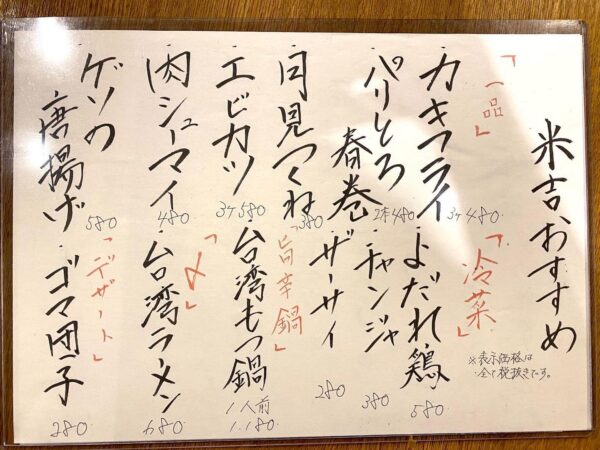 米吉おすすめ
「一品」
・カキフライ
3ケ480
・パリとろ
春巻
2本480
・月見つくね
380
・エビカツ
3ケ580
・肉シューマイ
480
・ゲソの
唐揚げ
580
「冷菜」
・よだれ鶏
580
・チャンジャ
380
・ザーサイ
280
「旨辛鍋」
・台湾もつ鍋
1人前
1.180
「〆」
・台湾ラーメン
680
「デザート」
・ゴマ団子
280
※表示価格は
全て税抜きです。